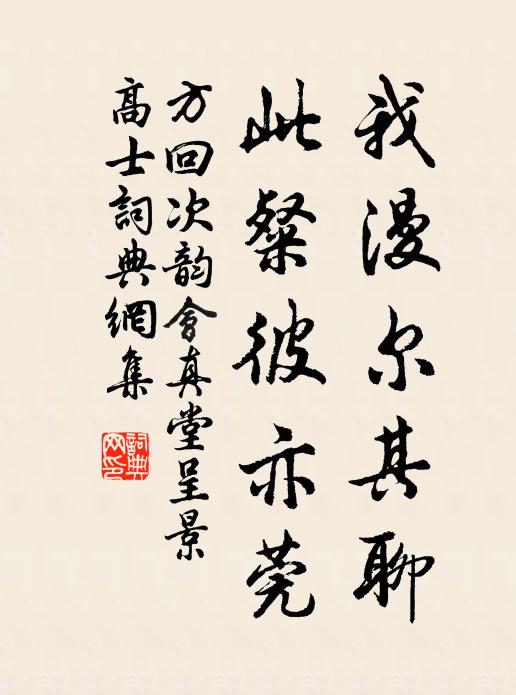 我漫尔其聊
此粲彼亦莞
方回次韵會真堂呈景
高士詞典網集
詞典网印